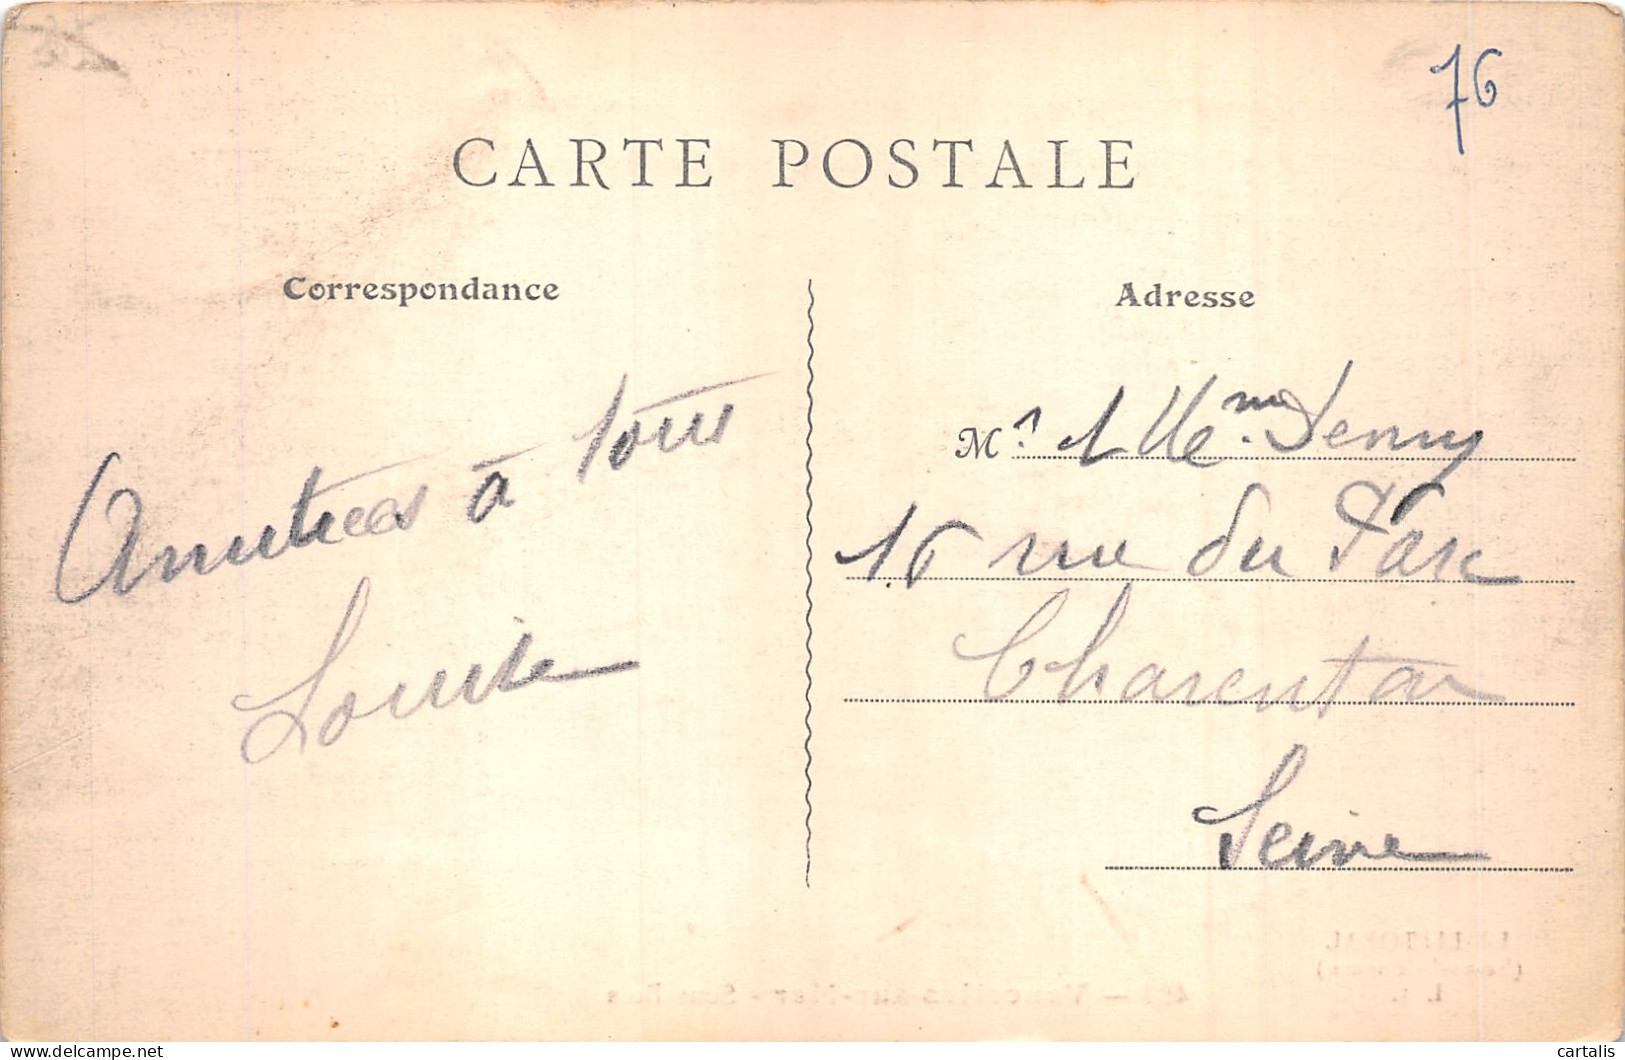 76
CARTE POSTALE
Correspondance
Adresse
Amitiées à tous
Louise
Mr. Mme.
16 rue du Parc
Charenton
Seine
delcampe.net
cartalis